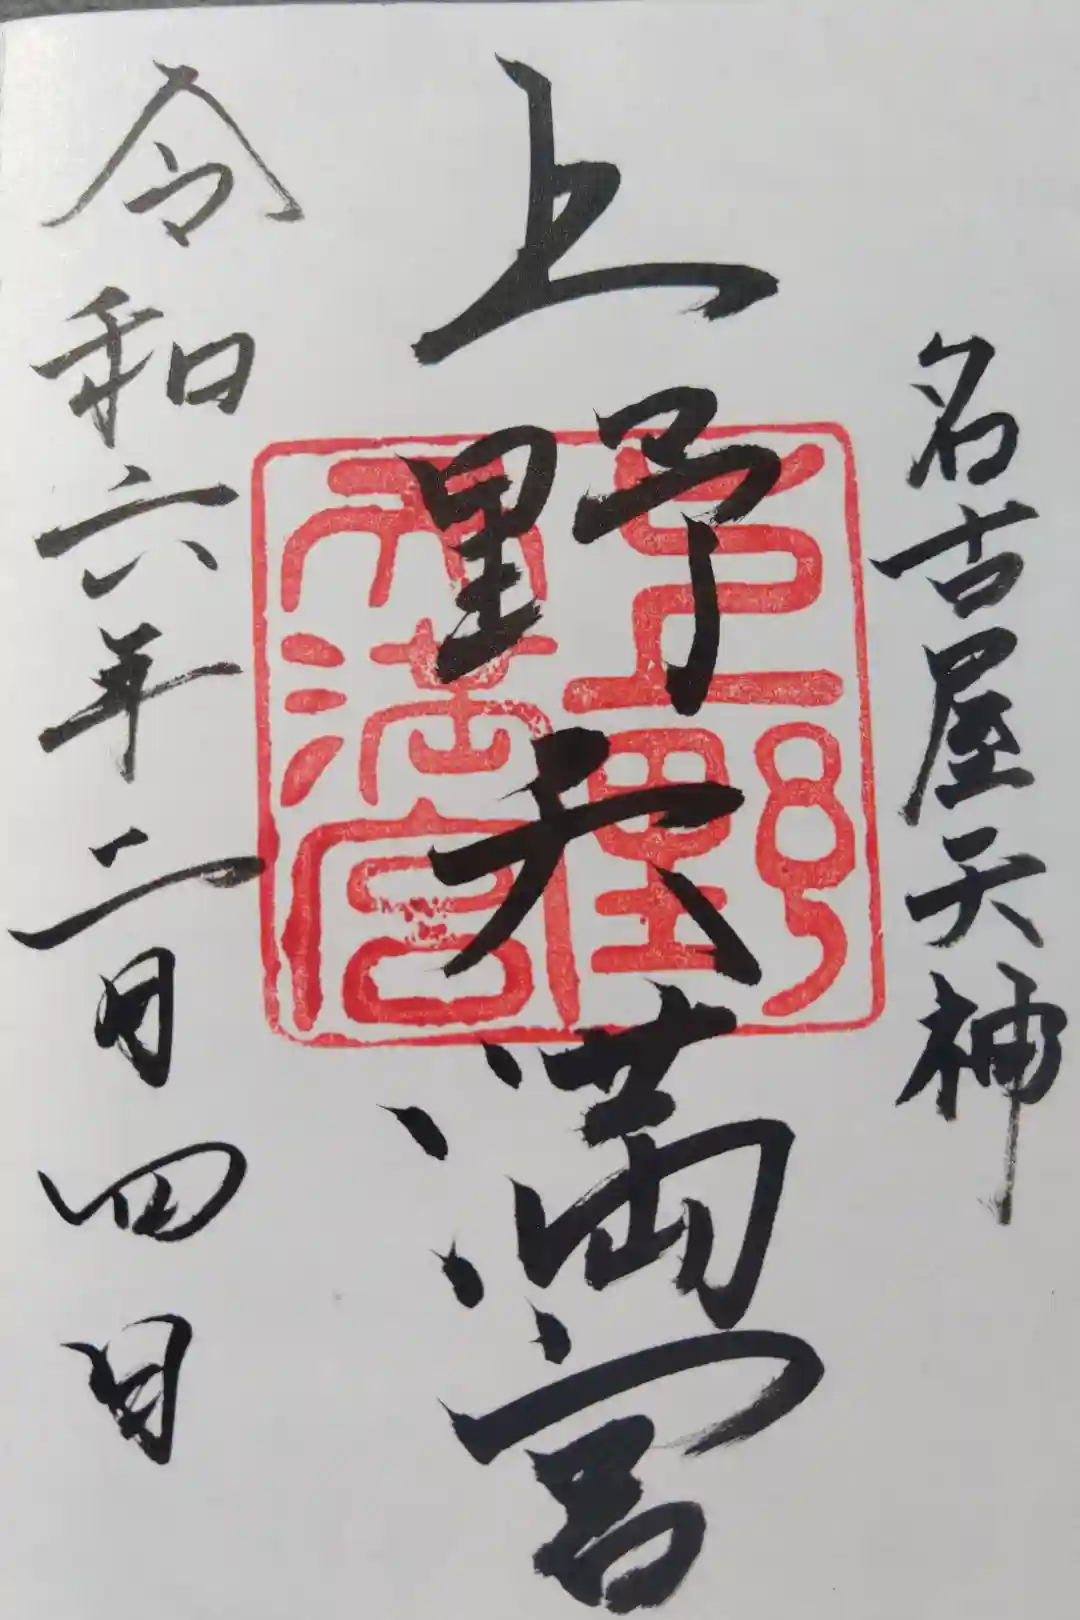 名古屋天楠
上野天満宮
上野
天満宮
令和六年二月四日